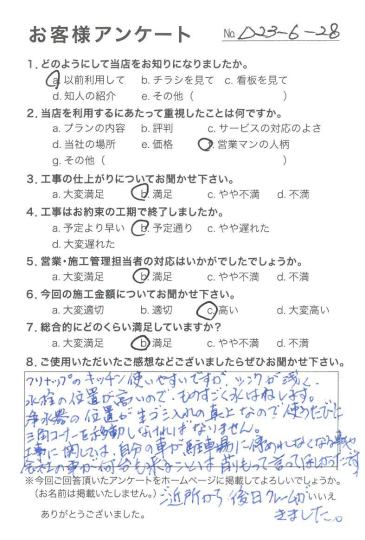 お客様アンケート No. D23-6-28
1. どのようにして当店をお知りになりましたか。
a. 以前利用して b. チラシを見て c. 看板を見て
d. 知人の紹介 e. その他（ ）
2. 当店を利用するにあたって重視したことは何ですか。
a. プランの内容 b. 評判 c. サービスの対応のよさ
d. 当社の場所 e. 価格 f. 営業マンの人柄
g. その他（ ）
3. 工事の仕上がりについてお聞かせ下さい。
a. 大変満足 b. 満足 c. やや不満 d. 不満
4. 工事はお約束の工期で終了しましたか。
a. 予定より早い b. 予定通り c. やや遅れた
d. 大変遅れた
5. 営業・施工管理担当者の対応はいかがでしたでしょうか。
a. 大変満足 b. 満足 c. やや不満 d. 不満
6. 今回の施工金額についてお聞かせ下さい。
a. 大変適切 b. 適切 c. 高い d. 大変高い
7. 総合的にどのくらい満足していますか？
a. 大変満足 b. 満足 c. やや不満 d. 不満
8. ご使用いただいたご感想などございましたらぜひお聞かせ下さい。
クリナップのキッチン使いやすいですが、シンクが浅く、
水栓の位置が高いので、ものすごく水はねします。
浄水器の位置がまっ入れの真上なので使うたびに
三角コーナーを移動しなければなりません。
工事に関しては、自分の車が駐車場に停められなくなる
会社の車が何台も来ることは前もって言ってほしかったです
※今回ご回答頂いたアンケートをホームページに掲載してよろしいでしょうか。
（お名前は掲載いたしません。） ご近所から後日クレームが いいえ
ありがとうございました。 きました。